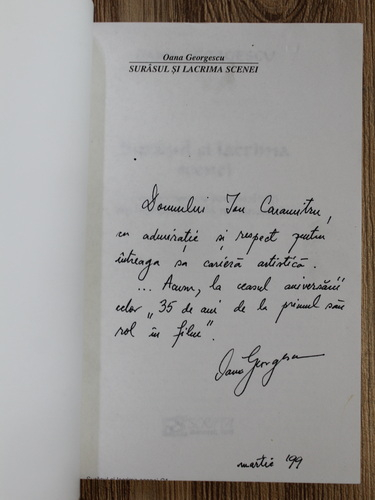 Oana Georgescu
SURÂSUL ȘI LACRIMA SCENEI
Domnului Ion Caramitru,
cu admirație și respect pentru
întreaga sa carieră artistică.
... Acum, la ceasul aniversării
celor „35 de ani de la primul său
rol în film".
Oana Georgescu
martie '99